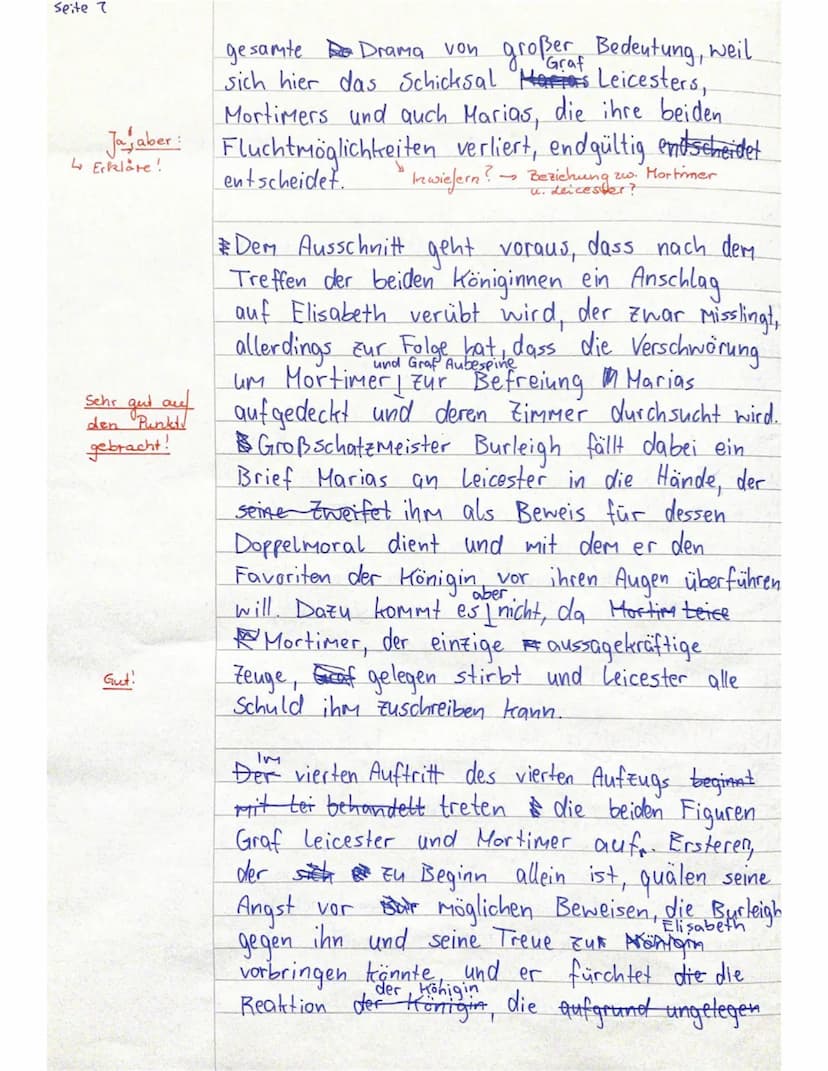 Seite 2
gesamte Drama von großer Bedeutung, weil
sich hier das Schicksal Graf Leicesters,
Mortimers und auch Marias, die ihre beiden
Ja, aber:
Fluchtmöglichkeiten verliert, endgültig entscheidet
↳ Erkläre!
entscheidet.
Inwiefern? → Beziehung zw. Mortimer
u. Leicester?
Dem Ausschnitt geht voraus, dass nach dem
Treffen der beiden Königinnen ein Anschlag
auf Elisabeth verübt wird, der zwar misslingt,
allerdings zur Folge hat, dass die Verschwörung
um Mortimer und Graf Aubespine zur Befreiung Marias
Sehr gut auf
den Punkt
gebracht!
aufgedeckt und deren Zimmer durchsucht wird.
Großschatzmeister Burleigh fällt dabei ein
Brief Marias an Leicester in die Hände, der
seine Zweifel ihm als Beweis für dessen
Doppelmoral dient und mit dem er den
Favoriten der Königin vor ihren Augen überführen
will. Dazu kommt es aber nicht, da Mortim Leice
Mortimer, der einzige aussagekräftige
Gut!
Zeuge, Graf gelegen stirbt und Leicester alle
Schuld ihm zuschreiben kann.
Der Im vierten Auftritt des vierten Aufzugs beginnt
mit Lei behandelt treten die beiden Figuren
Graf Leicester und Mortimer auf. Ersteren,
der sich zu Beginn allein ist, quälen seine
Angst vor möglichen Beweisen, die Burleigh
gegen ihn und seine Treue zur Königin Elisabeth
vorbringen könnte, und er fürchtet die die
Reaktion der Königin der Königin, die aufgrund ungelegen